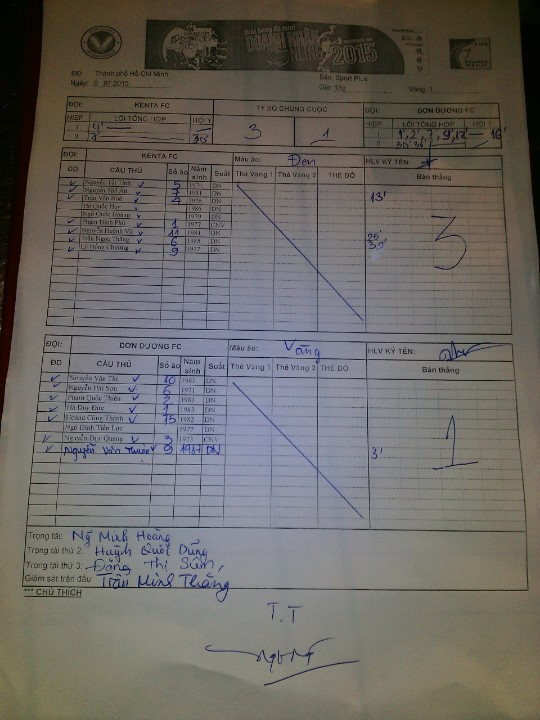 Giải bóng đá mini
DOANH NHÂN
2015
ĐĐ: Thành phố Hồ Chí Minh
Sân: Sport Plus
Ngày: 07.2015
Vòng: 1
ĐỘI: KENTA FC TỶ SỐ CHUNG CUỘC ĐỘI: ĐƠN DƯƠNG FC
HIỆP LỖI TỔNG HỢP HỘI Ý 3 1 HIỆP LỖI TỔNG HỢP HỘI Ý
I 4' I 1', 2', 7', 9', 12' 16'
II 30' II 30' 36'
ĐỘI: KENTA FC Màu áo: Đen HLV KÝ TÊN:
ĐD CẦU THỦ Số áo Năm sinh Suất Thẻ Vàng 1 Thẻ Vàng 2 THẺ ĐỎ Bàn thắng
Nguyễn Tất Tính 5 DN
7 DN 13'
Trần Văn Hoà 4 DN
DN 3
Ngô Quốc Hoàng 1979 DN
Phạm Đình Phú 1 1977 CNV
Nguyễn Huỳnh Vũ 11 1984 DN
Trần Ngọc Thắng 6 1985 DN
Lê Hồng Chương 9 1977 DN
ĐỘI: ĐƠN DƯƠNG FC Màu áo: Vàng HLV KÝ TÊN:
ĐD CẦU THỦ Số áo Năm sinh Suất Thẻ Vàng 1 Thẻ Vàng 2 THẺ ĐỎ Bàn thắng
Nguyễn Văn Thi 10 1981 DN
Nguyễn Hải Sơn 6 1971 DN
Phạm Quốc Thiện 2 1982 DN
Hà Duy Đức 1 1983 DN
Hoàng Công Thành 15 1982 DN 1
Ngô Đình Tiến Lực 1977 DN
Nguyễn Duy Quang 3 1973 CNV
Nguyễn Văn Thuận 9 1987 DN 3'
Trọng tài: Ng Minh Hoàng
Trọng tài thứ 2: Huỳnh Quốc Dũng
Trọng tài thứ 3: Đặng Thị Sứm
Giám sát trận đấu: Trần Minh Thắng
*** CHÚ THÍCH
T.T